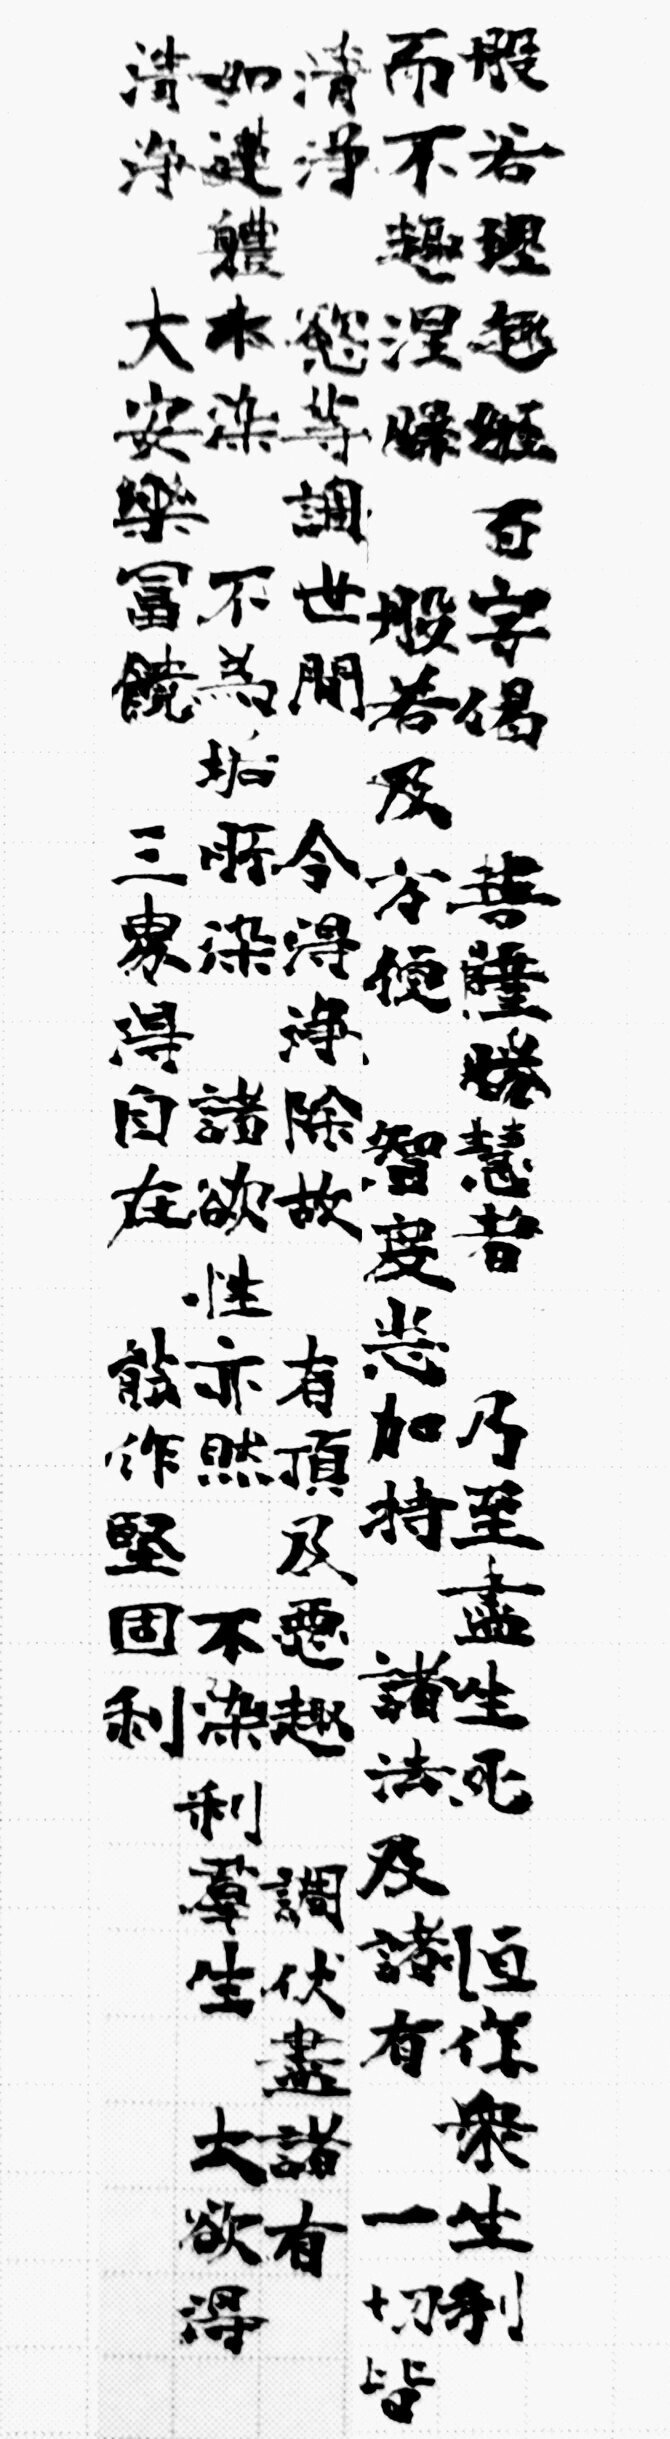 般若理趣經百字偈 菩薩勝慧者 乃至盡生死 恒作眾生利
而不趣涅槃 般若及方便 智度悉加持 諸法及諸有 一切皆
清淨 慾等調世間 令得淨除故 有頂及惡趣 調伏盡諸有
如蓮軆本染 不為垢所染 諸欲性亦然 不染利羣生 大欲得
清淨 大安樂富饒 三界得自在 能作堅固利